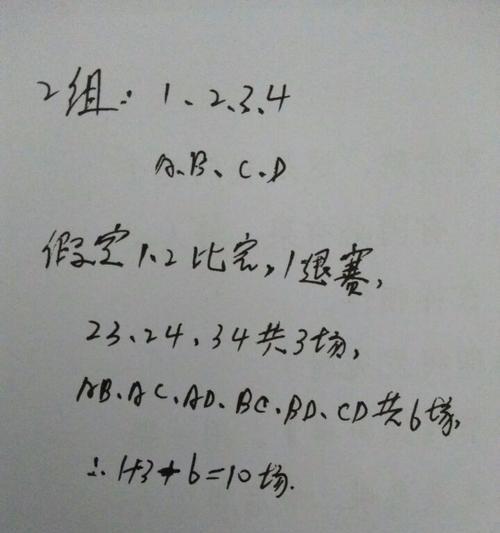 2组:1、2、3、4
A、B、C、D
假定1、2比完,1退赛,
23、24、34共3场,
AB、AC、AD、BC、BD、CD共6场,
∴1+3+6=10场.